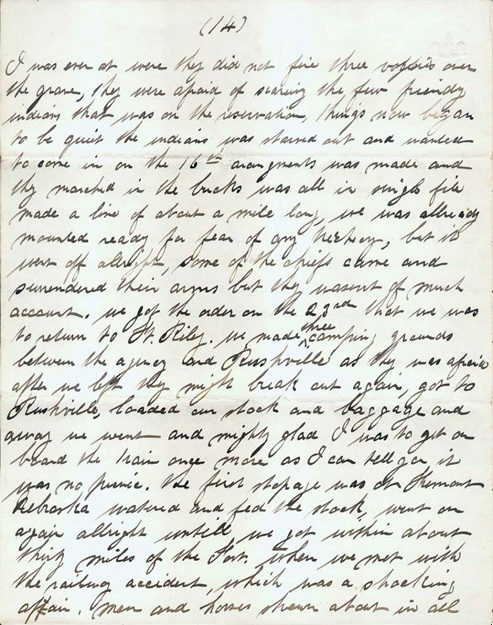 (14)
I was ever at were they did not fire three volleys over
the grave, they were afraid of scaring the few friendly
indians that was on the reservation, things now began
to be quiet the indians was starved out and wanted
to come in on the 16th arangments was made and
they marched in the bucks was all in single file
made a line of about a mile long, we was allready
mounted ready for fear of any trechery, but it
went off allright, some of the chiefs came and
surrendered their arms but they wasent of much
account. we got the order on the 23rd that we was
to return to Ft. Riley. we made three camping grounds
between the agency and Rushville as they was afraid
after we left they might break out again, got to
Rushville, loaded our stock and baggage and
away we went and mighty glad I was to get on
board the train once more as I can tell you it
was no picnic. the first stopage was at Fremont
Nebraska watered and fed the stock, went on
again allright untill, we got within about
thirty miles of the Fort. when we met with
the railway accident, which was a shocking
affair. men and horses strewn about in all